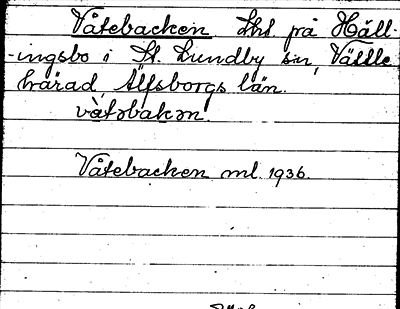 Våtebacken Lht på Häll-
-ingsbo i St. Lundby sn, Vättle
härad, Älfsborgs län.
våtəbakən.
Våtebacken ml. 1936.